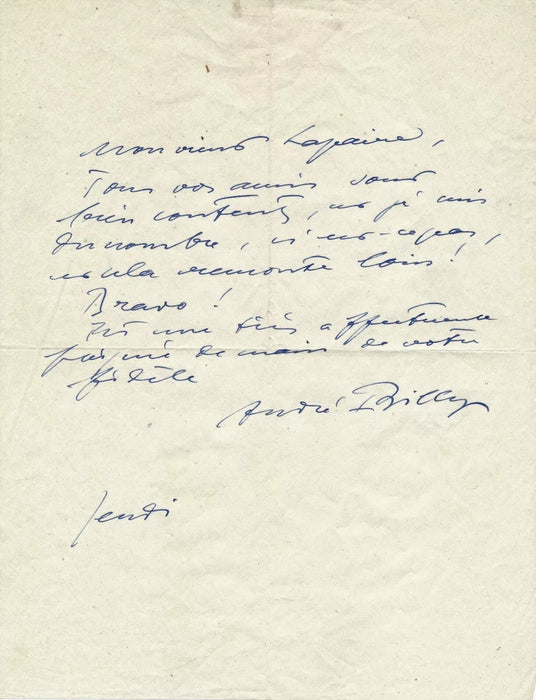 Monsieur Lapaire,
Tous vos amis sont
bien contents, et je suis
du nombre, n'est-ce pas,
et cela remonte loin!
Bravo!
Et une très affectueuse
poignée de main de votre
fidèle
André Billy
Jeudi